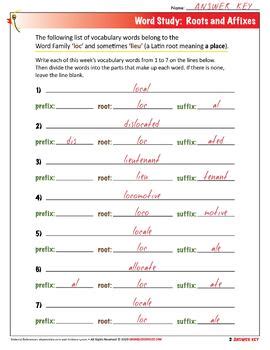 Name: ANSWER KEY
Word Study: Roots and Affixes
The following list of vocabulary words belong to the
Word Family 'loc' and sometimes 'lieu' (a Latin root meaning a place).
Write each of this week's vocabulary words from 1 to 7 on the lines below.
Then divide the words into the parts that make up each word. If there is none,
leave the line blank.
local
1)
prefix: root: loc suffix: al
dislocated
2)
prefix: dis root: loc suffix: ated
lieutenant
3)
prefix: root: lieu suffix: tenant
locomotive
4)
prefix: root: loco suffix: motive
locale
5)
prefix: root: loc suffix: ale
allocate
6)
prefix: al root: loc suffix: ate
locale
7)
prefix: root: loc suffix: ale
ANSWER KEY